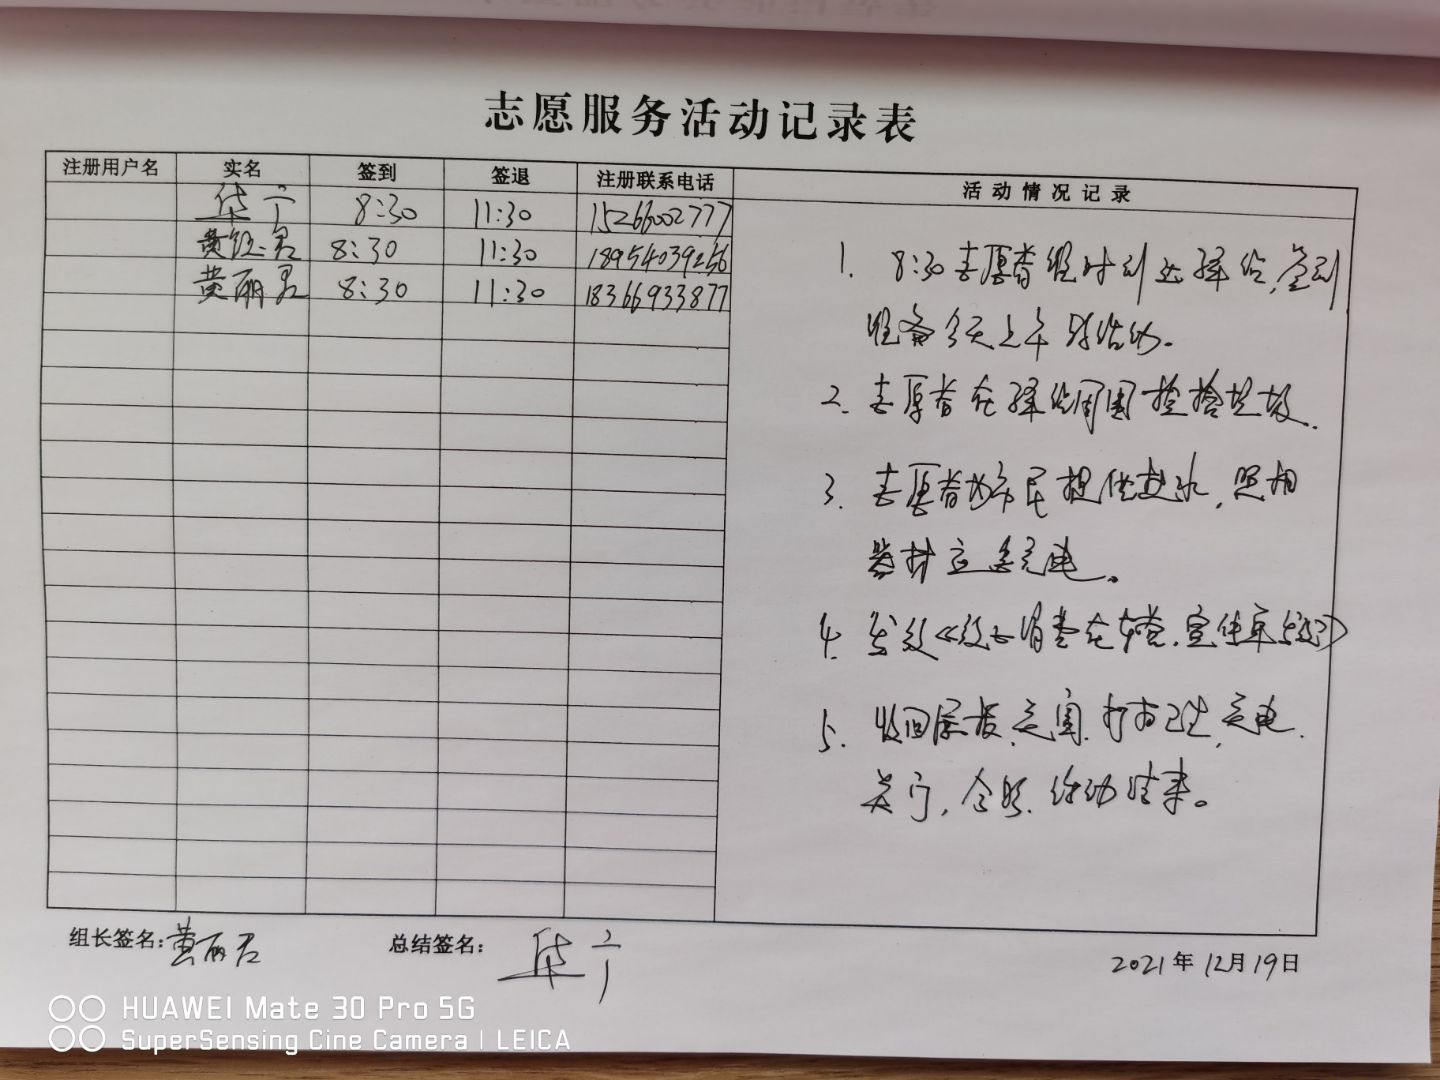 志愿服务活动记录表
注册用户名 实名 签到 签退 注册联系电话 活动情况记录
8:30 11:30 15266002777
8:30 11:30 18954039256
黄丽君 8:30 11:30 18366933877
1. 8:30志愿者准时到达驿站,签到
准备今天上午的活动。
2. 志愿者在驿站周围捡拾垃圾.
3. 志愿者为市民提供热水,照相
器材应急充电。
4. 发放
5. 收回展板,打扫卫生,
关门,合影.活动结束。
组长签名:黄丽君 总结签名:
2021年12月19日
HUAWEI Mate 30 Pro 5G
SuperSensing Cine Camera | LEICA